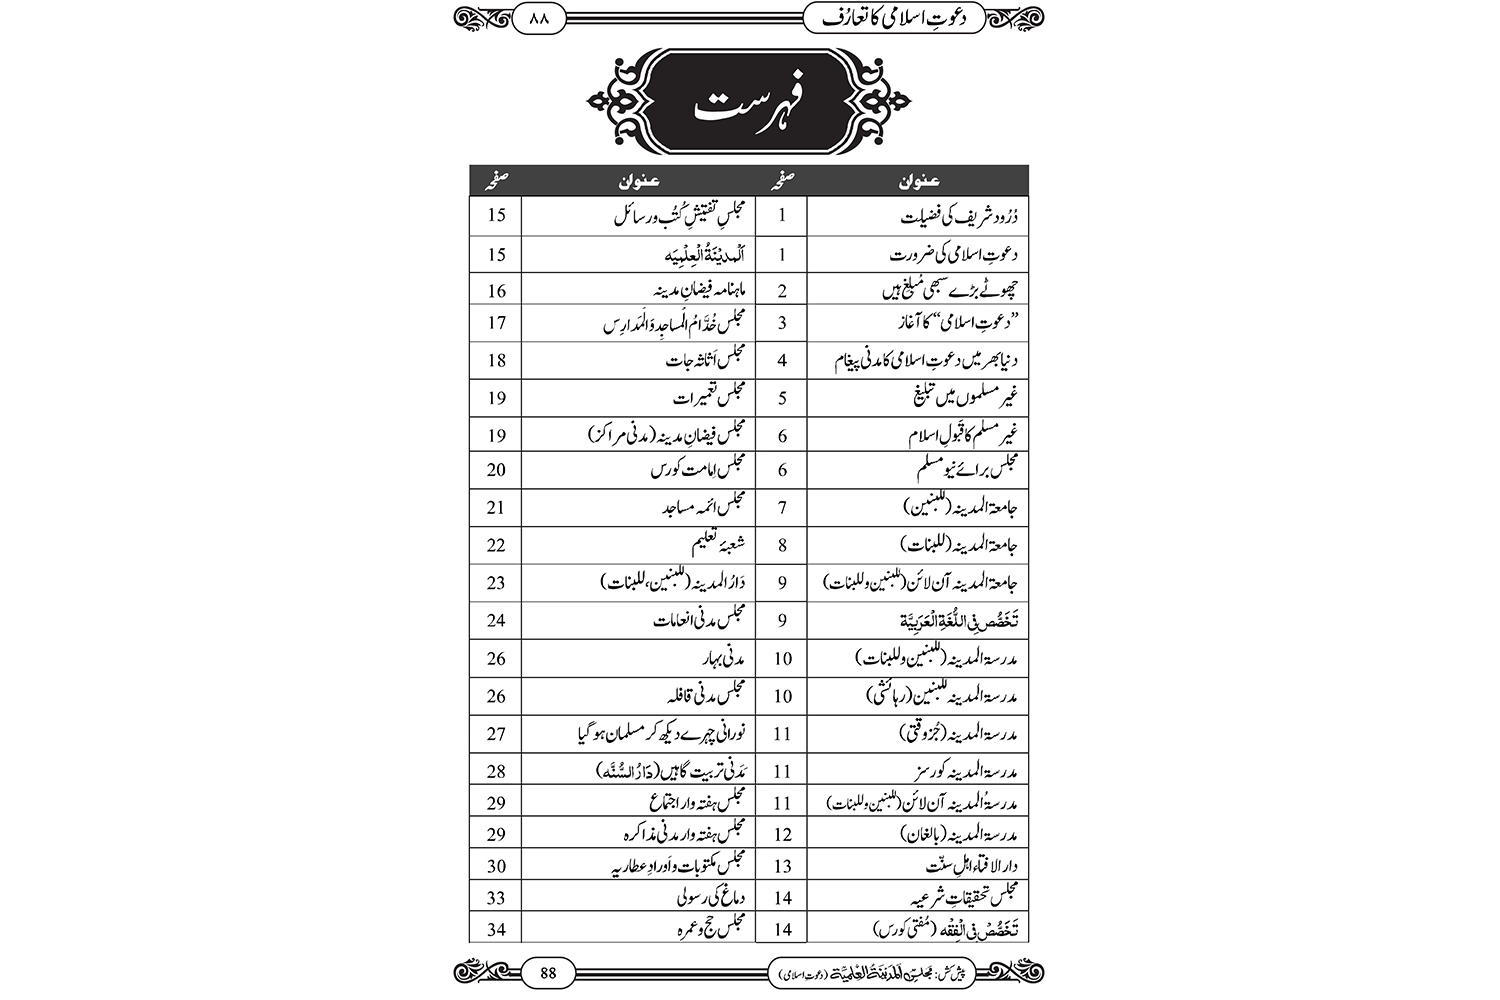 دعوتِ اسلامی کا تعارُف ۸۸
فہرست
عنوان صفحہ عنوان صفحہ
دُرُود شریف کی فضیلت 1 مجلسِ تفتیشِ کُتُب و رسائل 15
دعوتِ اسلامی کی ضرورت 1 اَلْمدِیْنَۃُ الْعِلْمِیَہ 15
چھوٹے بڑے سبھی مُبلِّغ ہیں 2 ماہنامہ فیضانِ مدینہ 16
”دعوتِ اسلامی“ کا آغاز 3 مجلس خُدَّامُ الْمساجِدِ وَالْمَدَارِس 17
دنیا بھر میں دعوتِ اسلامی کا مدنی پیغام 4 مجلس اَثاثہ جات 18
غیر مسلموں میں تبلیغ 5 مجلس تعمیرات 19
غیر مسلم کا قَبولِ اسلام 6 مجلس فیضانِ مدینہ (مدنی مراکز) 19
مجلس برائے نیو مسلم 6 مجلس اِمامت کورس 20
جامعۃ المدینہ (للبنین) 7 مجلس ائمہ مساجد 21
جامعۃ المدینہ (للبنات) 8 شعبۂ تعلیم 22
جامعۃ المدینہ آن لائن (للبنین وللبنات) 9 دَارُ المدینہ (للبنین، للبنات) 23
تَخَصُّص فِی اللُّغَۃِ الْعَرَبِیَّۃ 9 مجلس مدنی انعامات 24
مدرسۃ المدینہ (للبنین وللبنات) 10 مدنی بہار 26
مدرسۃ المدینہ للبنین (رہائشی) 10 مجلس مدنی قافلہ 26
مدرسۃ المدینہ (جُزوقتی) 11 نورانی چہرے دیکھ کر مسلمان ہو گیا 27
مدرسۃ المدینہ کورسز 11 مَدَنی تربیت گاہیں (دَارُ السُّنَّہ) 28
مدرسۃُ المدینہ آن لائن (للبنین وللبنات) 11 مجلس ہفتہ وار اجتماع 29
مدرسۃ المدینہ (بالغان) 12 مجلس ہفتہ وار مدنی مذاکرہ 29
دار الافتاء اہلِ سنّت 13 مجلس مکتوبات و اَورادِ عطاریہ 30
مجلس تحقیقاتِ شرعیہ 14 دماغ کی رسولی 33
تَخَصُّصْ فِی الْفِقْہ (مُفتی کورس) 14 مجلس حج و عمرہ 34
پیش کش: مجلس اَلْمَدِیْنَۃُ الْعِلْمِیَّۃ (دعوتِ اسلامی) 88